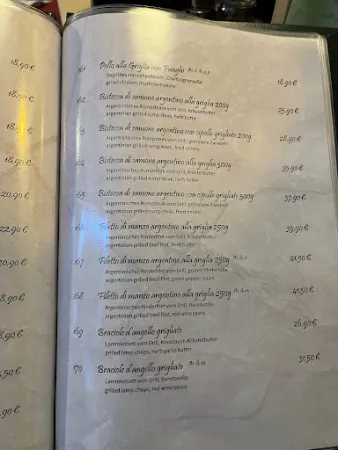 18,90 €
18,90 €
18,90 €
18,90 €
20,90 €
22,90 €
,90 €
8,90 €
8,90 €
,50 €
,90 €
61 Pollo alla Griglia con Funghi
Gegrilltes Hähnchenfleisch, Champignonsoße
grilled chicken, mushroom sauce
18,90 €
62 Bistecca di samone argentino alla griglia 200g
Argentinisches Rumpsteak vom Grill, Kräuterbutter
argentinian grilled rump steak, herb butter
25,90 €
63 Bistecca di samone argentino con cipolle grigliate 200g
Argentinisches Rumpsteak vom Grill, gebratene Zwiebeln
argentinian grilled rump steak, fried onions
28,90 €
64 Bistecca di samone argentino alla griglia 300g
Argentinisches Rumpsteak vom Grill, Kräuterbutter
argentinian grilled rump steak, herb butter
35,90 €
65 Bistecca di samone argentino con cipolle grigliate 300g
Argentinisches Rumpsteak vom Grill, gebratene Zwiebeln
argentinian grilled rump steak, fried onions
38,90 €
66 Filetto di manzo argentino alla griglia 250g
Argentinisches Rinderfilet vom Grill, Kräuterbutter
argentinian grilled beef filet, herb butter
39,90 €
67 Filetto di manzo argentino alla griglia 250g
Argentinisches Rinderfilet vom Grill, grüner Pfeffersoße
argentinian grilled beef filet, green pepper sauce
41,50 €
68 Filetto di manzo argentino alla griglia 250g
Argentinisches Rinderfilet vom Grill, Barolosoße
argentinian grilled beef filet, red wine sauce
41,50 €
69 Braciole d'angello grigliate
Lammkotlett vom Grill, Knoblauch-Kräuterbutter
grilled lamp chops, herb garlic butter
26,90 €
70 Braciole d'angello grigliate
Lammkotlett vom Grill, Barolosoße
grilled lamp chops, red wine sauce
31,50 €